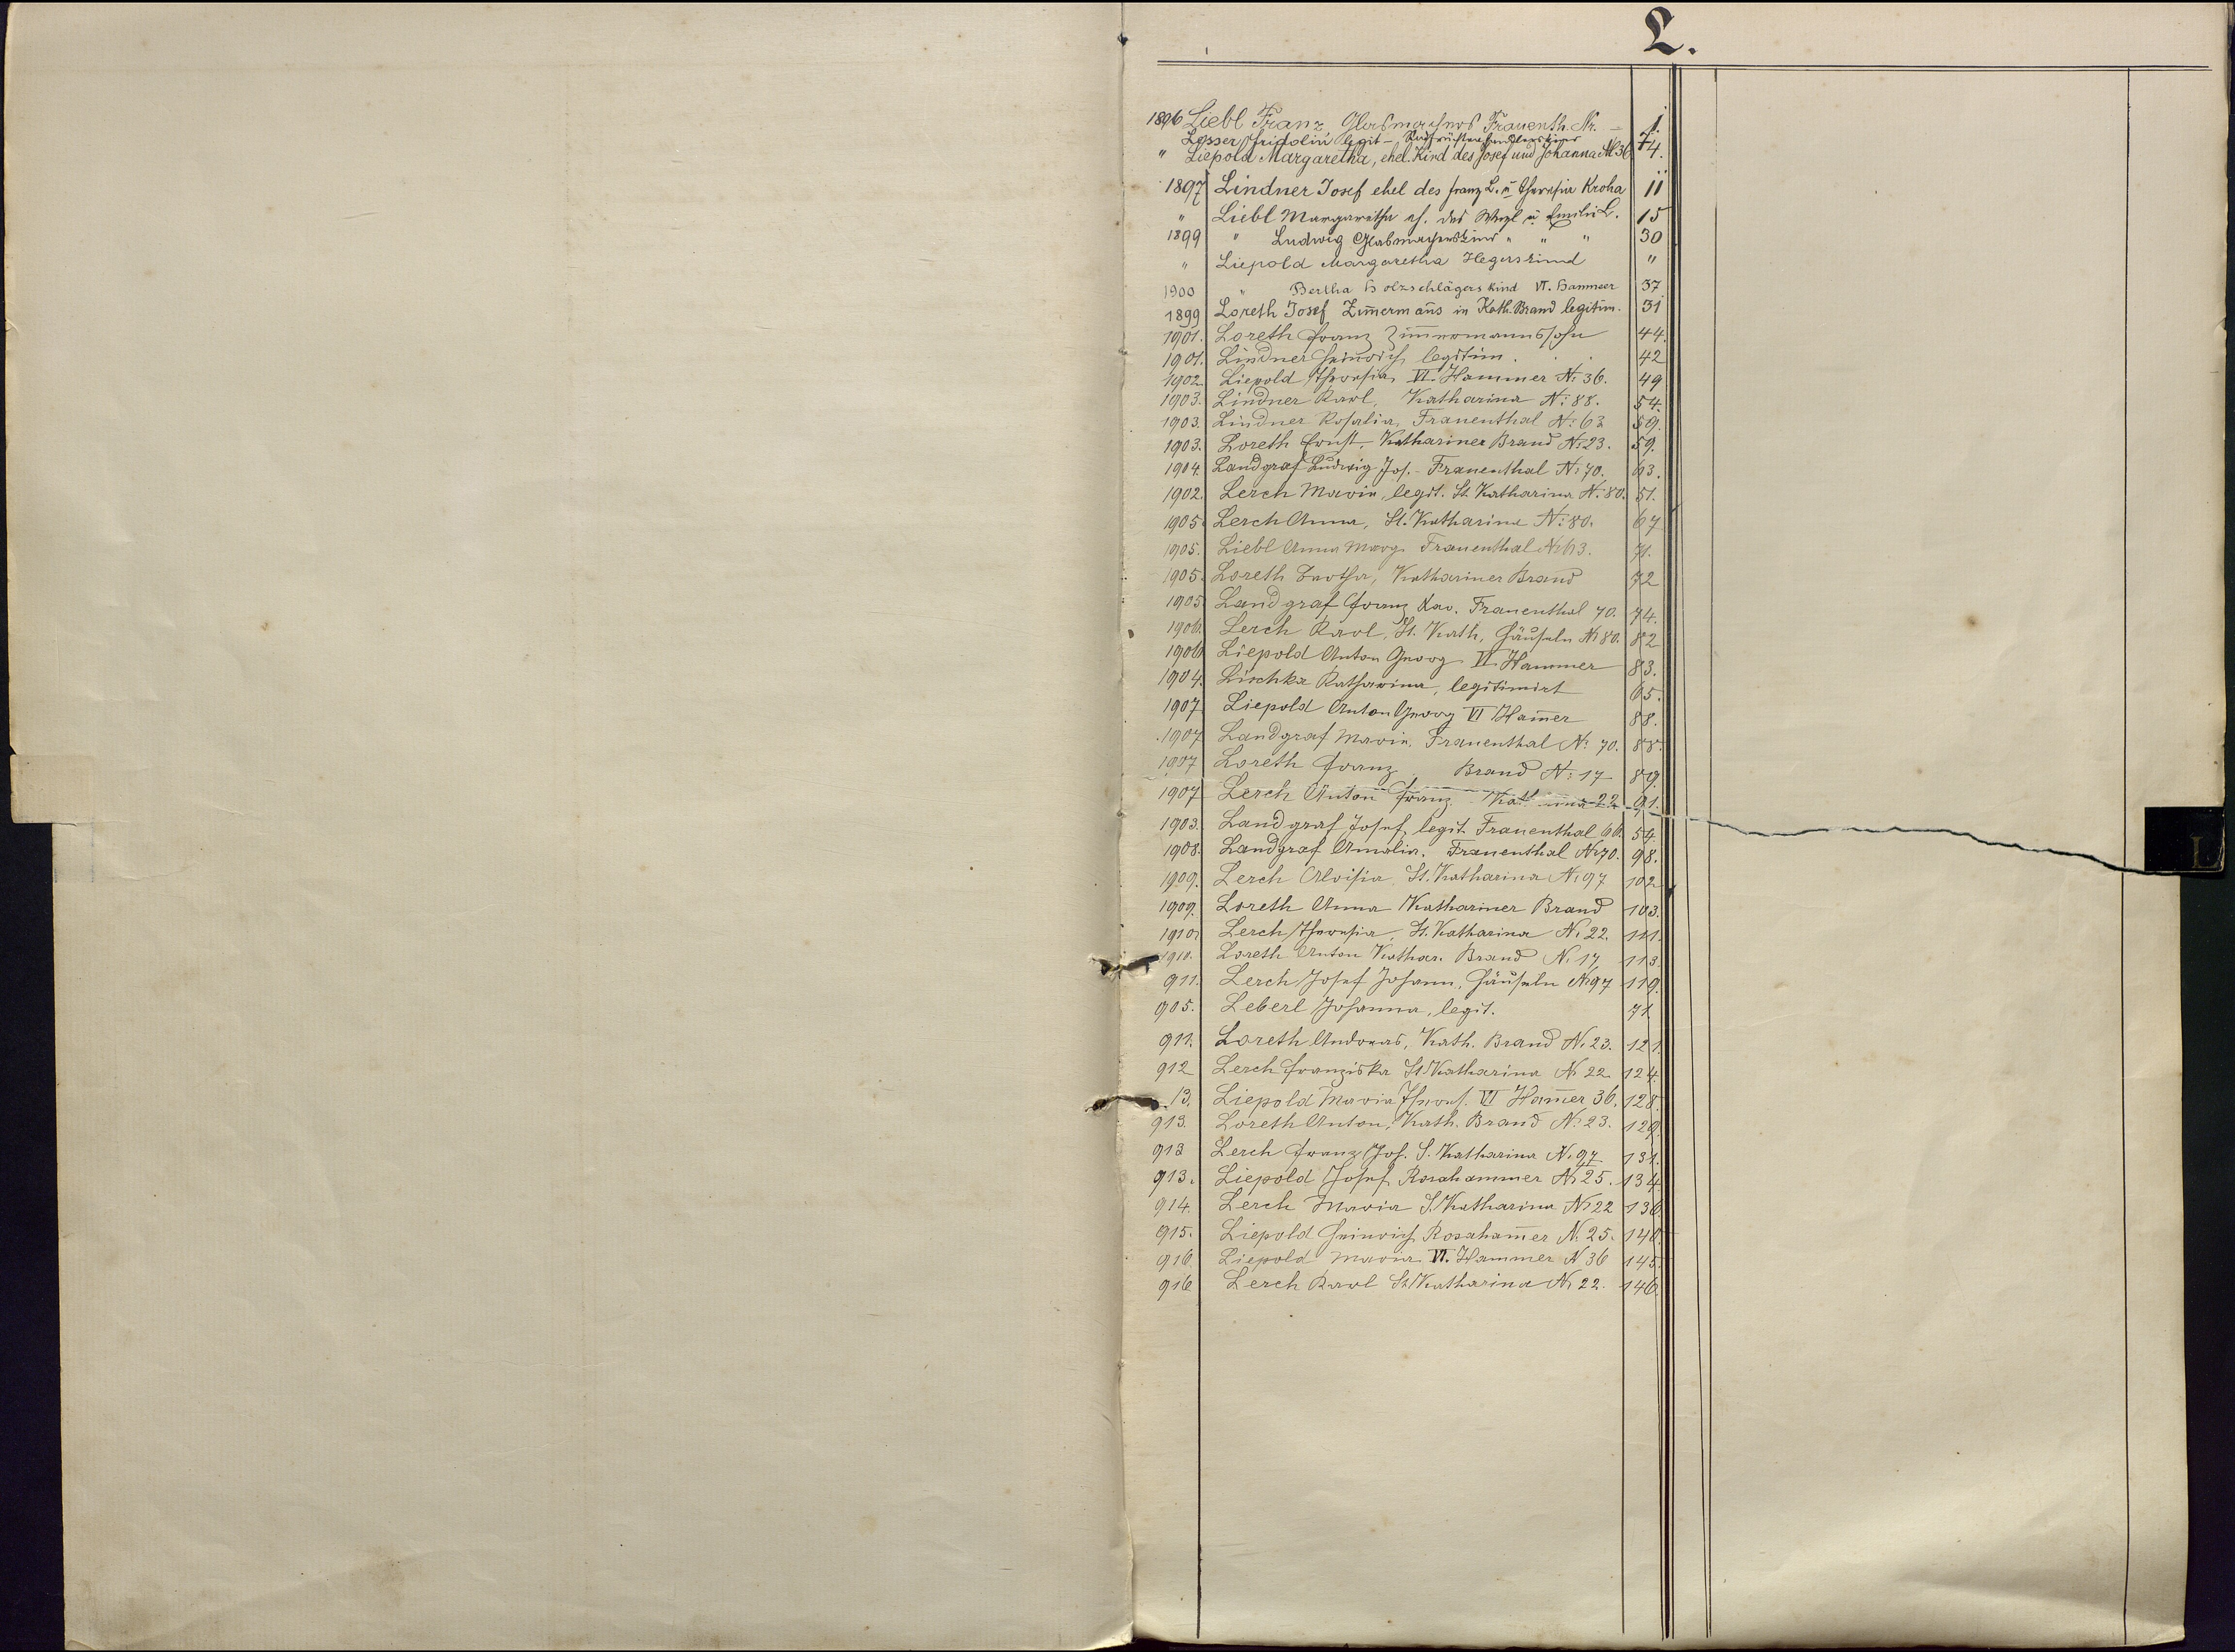 L.
1896 Liebl Franz, Glasmachers Frauenth. Nr. – 1.
Losser Fridolin legit – 7
" Liepold Margaretha, ehel. Kind des Josef und Johanna N 36 4.
1897 Lindner Josef ehel des Franz L. u Theresia Kroha 11
" Liebl Margaretha eh. des Wenzl u Emilie L. 15
1899 " Ludwig Glasmacherskind " " " 30
" Liepold Margaretha Hegerskind "
1900 " Bertha Holzschlägerskind VI. Hammer 37
1899 Loreth Josef Zimermans in Kath. Brand legitim. 31
1901. Loreth Franz Zimmermannssohn 44.
1901. Lindner Heinrich legitim. 42
1902. Liepold Theresia VI. Hammer N: 36. 49
1903. Lindner Karl, Katharina N: 88. 54.
1903. Lindner Rosalia, Frauenthal N: 63 59.
1903. Loreth Ernst, Kathariner Brand N: 23. 59.
1904. Landgraf Ludwig Jos. - Frauenthal N: 70. 63.
1902. Lerch Maria, legit. St. Katharina N: 80. 51.
1905. Lerch Anna, St. Katharina N: 80. 67
1905. Liebl Anna Marg. Frauenthal N: 63. 71.
1905. Loreth Bertha, Kathariner Brand 72
1905 Landgraf Franz Xav. Frauenthal 70. 74.
1906. Lerch Karl, St. Kath, Häuseln N: 80. 82
1906 Liepold Anton Georg VI. Hammer 83.
1904. Lischka Katharina, legitimirt 65.
1907 Liepold Anton Georg VI Hamer 88.
1907 Landgraf Maria. Frauenthal N: 70. 88.
1907 Loreth Franz, Brand N: 17 89.
1907 Lerch Anton Franz Katharina 22 91.
1903. Landgraf Josef, legit. Frauenthal 66. 54.
1908. Landgraf Amalia. Frauenthal N: 70. 98.
1909. Lerch Aloisia, St. Katharina N: 97 102
1909. Loreth Anna Kathariner Brand 103.
1910. Lerch Theresia, St. Katharina N: 22. 111.
1910. Loreth Anton Kathar. Brand N: 17 113.
911. Lerch Josef Johann, Häuseln N: 97 119.
905. Leberl Johanna, legit. 71
911. Loreth Andreas, Kath. Brand N: 23. 121.
912 Lerch Franziska St. Katharina N 22 124.
13. Liepold Maria Theres. VI Hamer 36. 128.
913. Loreth Anton, Kath. Brand N: 23. 129.
913 Lerch Franz Jos. S. Katharina N: 97 131.
913. Liepold Josef Rosahammer N: 25. 134.
914. Lerch Maria S. Katharina N: 22 136.
915. Liepold Heinrich Rosahamer N. 25. 140.
916. Liepold Maria VI. Hammer N 36 145.
916 Lerch Karl St. Katharina N: 22. 146.
L